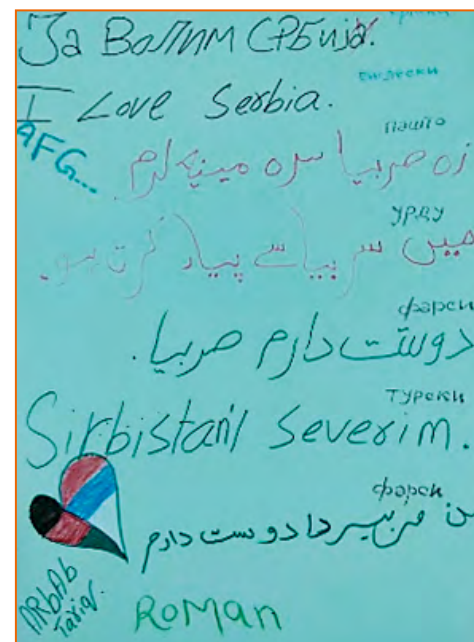 Ја Волим СРБија.
енглески
I Love Serbia.
AFG...
пашто
زه صربیا سره مینه لرم.
УРДУ
میں سربیا سے پیار کرت ہو.
фарси
دوست دارم صربیا.
Турски
Sirbistani severim.
фарси
دوست دارم
ARbAb
Tariq.
RoMan